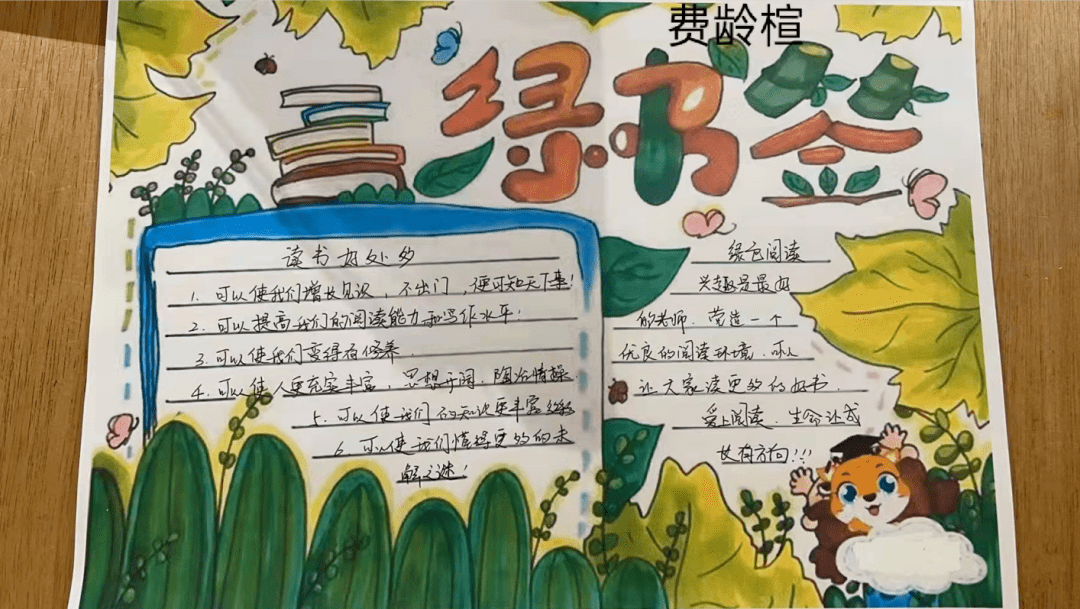 费龄楦
绿书签
读书好处多
1. 可以使我们增长见识，不出门，便可知天下事！
2. 可以提高我们的阅读能力和写作水平！
3. 可以使我们变得有修养.
4. 可以使人更充实丰富，思想开阔．陶冶情操
5. 可以使我们的知识更丰富多彩
6. 可以使我们懂得更多的未
解之谜！
绿色阅读
兴趣是最好
的老师．营造一个
优良的阅读环境．可以
让大家读更多的好书．
爱上阅读．生命让成
长有方向！！！